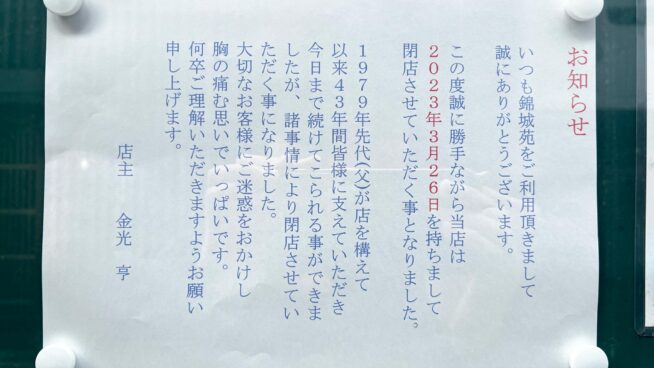 お知らせ
いつも錦城苑をご利用頂きまして
誠にありがとうございます。
この度誠に勝手ながら当店は
2023年3月26日を持ちまして
閉店させていただく事となりました。
1979年先代(父)が店を構えて
以来43年間皆様に支えていただき
今日まで続けてこられる事ができま
したが、諸事情により閉店させてい
ただく事になりました。
大切なお客様にご迷惑をおかけし
胸の痛む思いでいっぱいです。
何卒ご理解いただきますようお願い
申し上げます。
店主 金光 亨